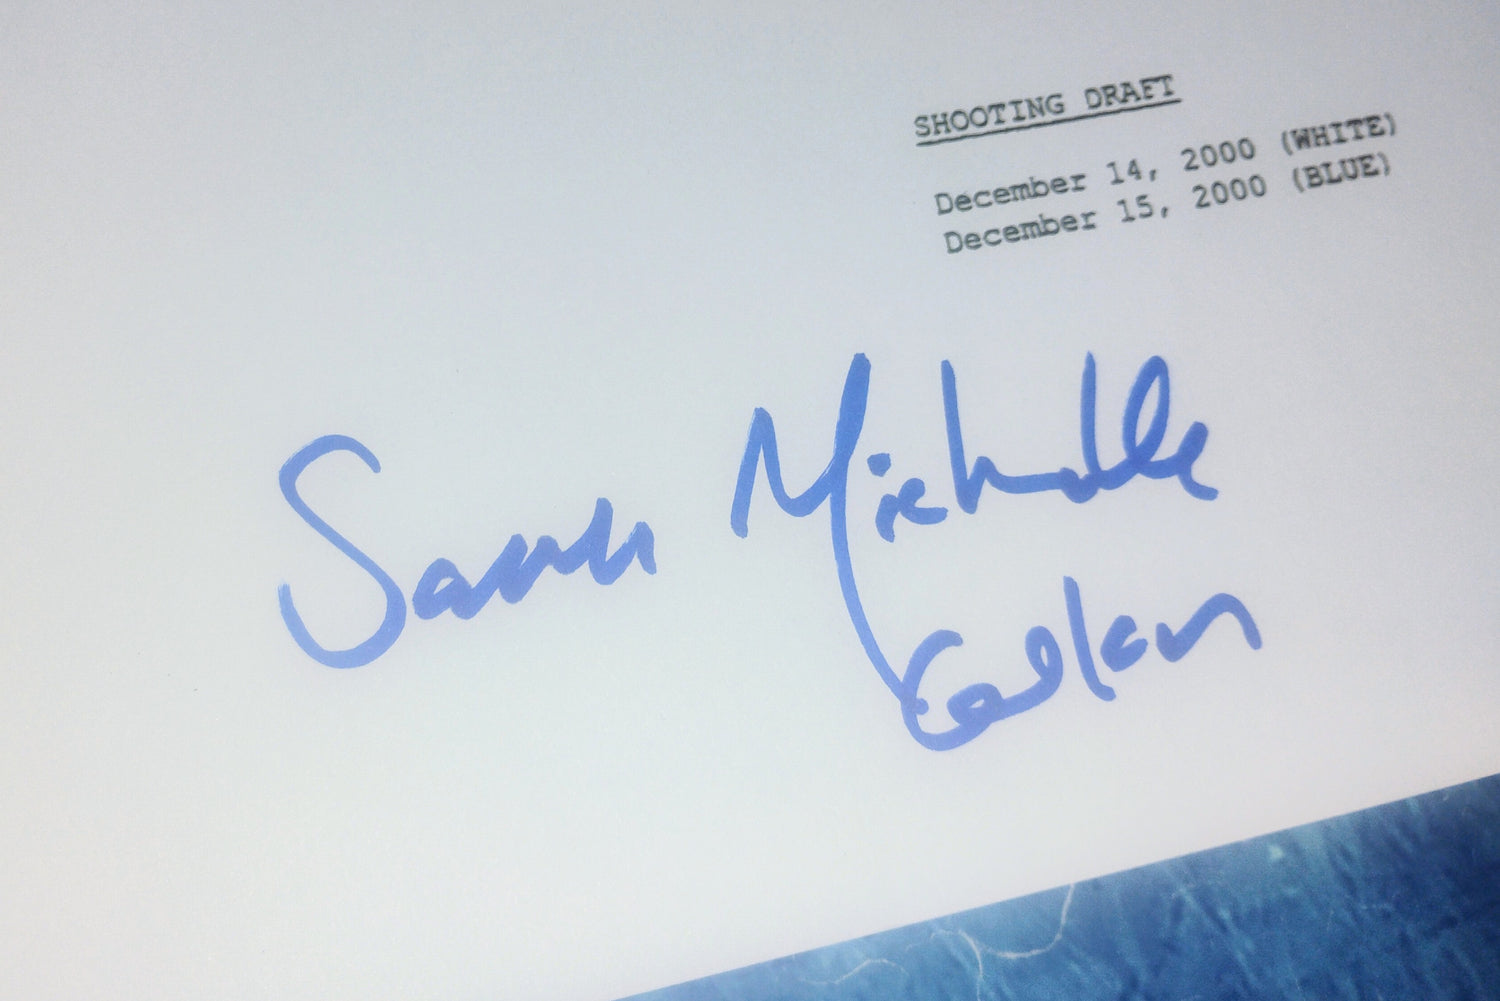 SHOOTING DRAFT
December 14, 2000 (WHITE)
December 15, 2000 (BLUE)
Sarah Michelle
Gellar